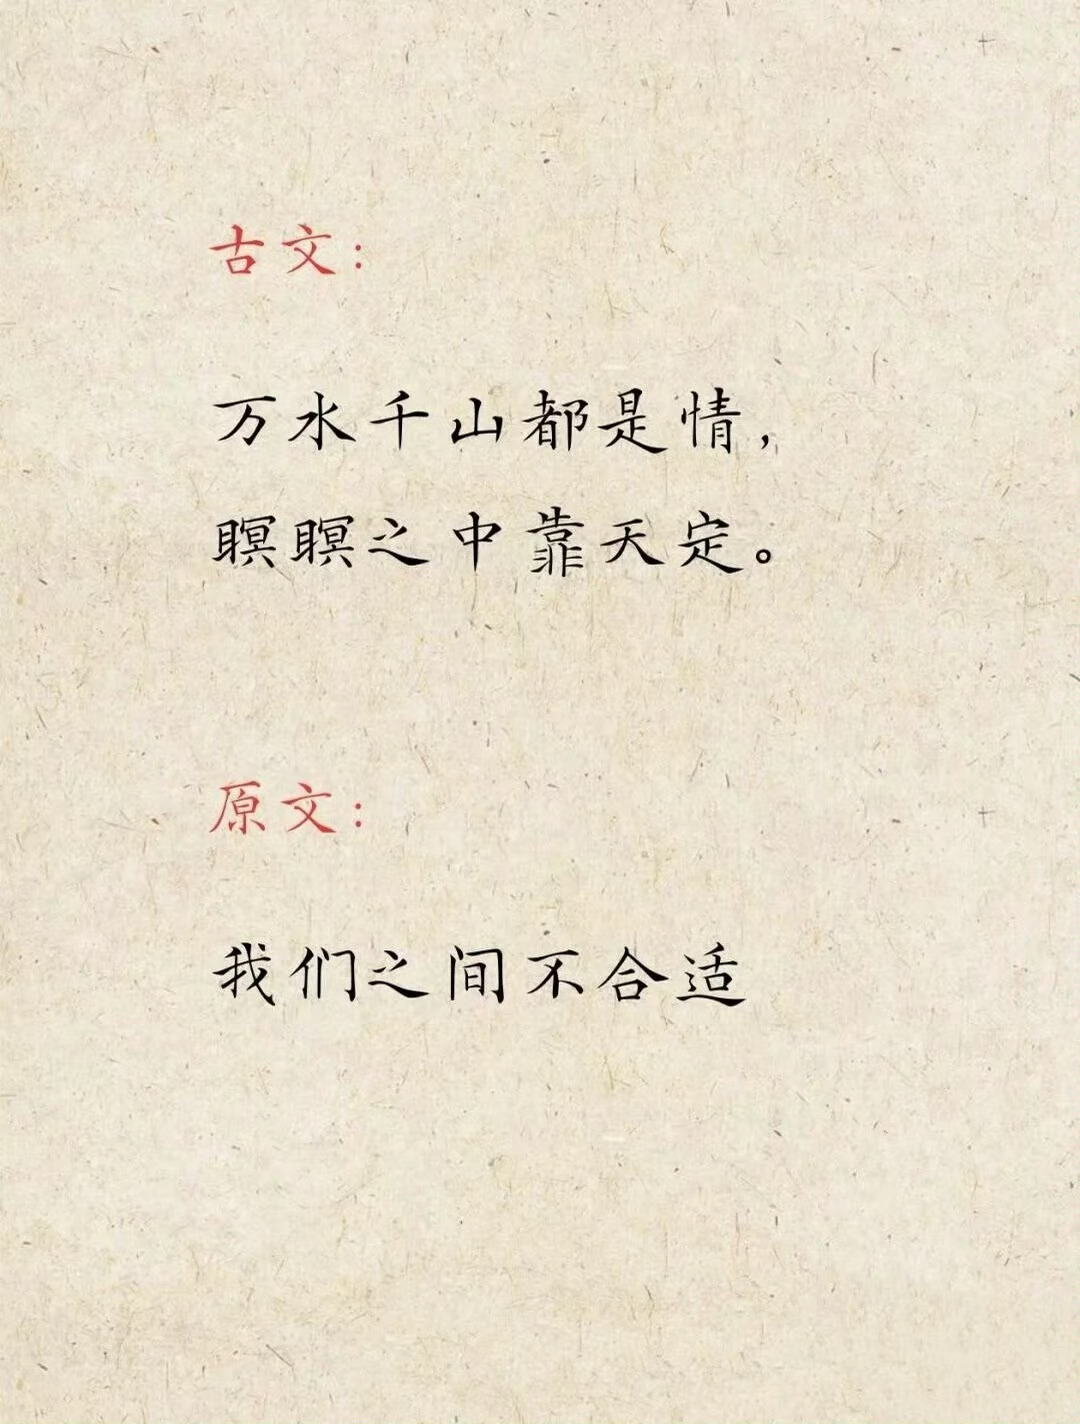 古文:
万水千山都是情,
瞑瞑之中靠天定。
原文:
我们之间不合适